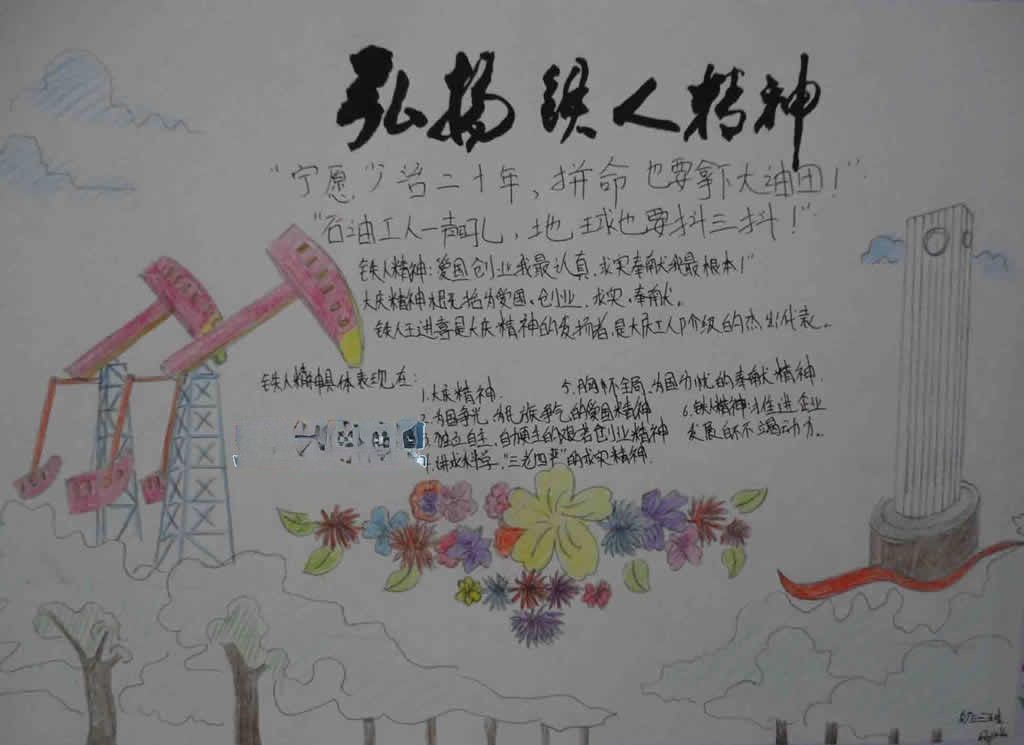 弘扬铁人精神
"宁愿少活二十年，拼命也要拿下大油田！"
"石油工人一声吼，地球也要抖三抖！"
铁人精神：爱国创业我最认真，求实奉献我最根本！"
大庆精神概括为爱国、创业、求实、奉献。
铁人王进喜是大庆精神的发扬者，是大庆工人阶级的杰出代表。
铁人精神具体表现在：
1.大庆精神
2.为国争光，为民族争气的爱国精神
3.独立自主，自力更生的艰苦创业精神
4.讲求科学，"三老四严"的求实精神
5.胸怀全局，为国分忧的奉献精神
6.铁人精神：推进企业
发展的不竭动力。